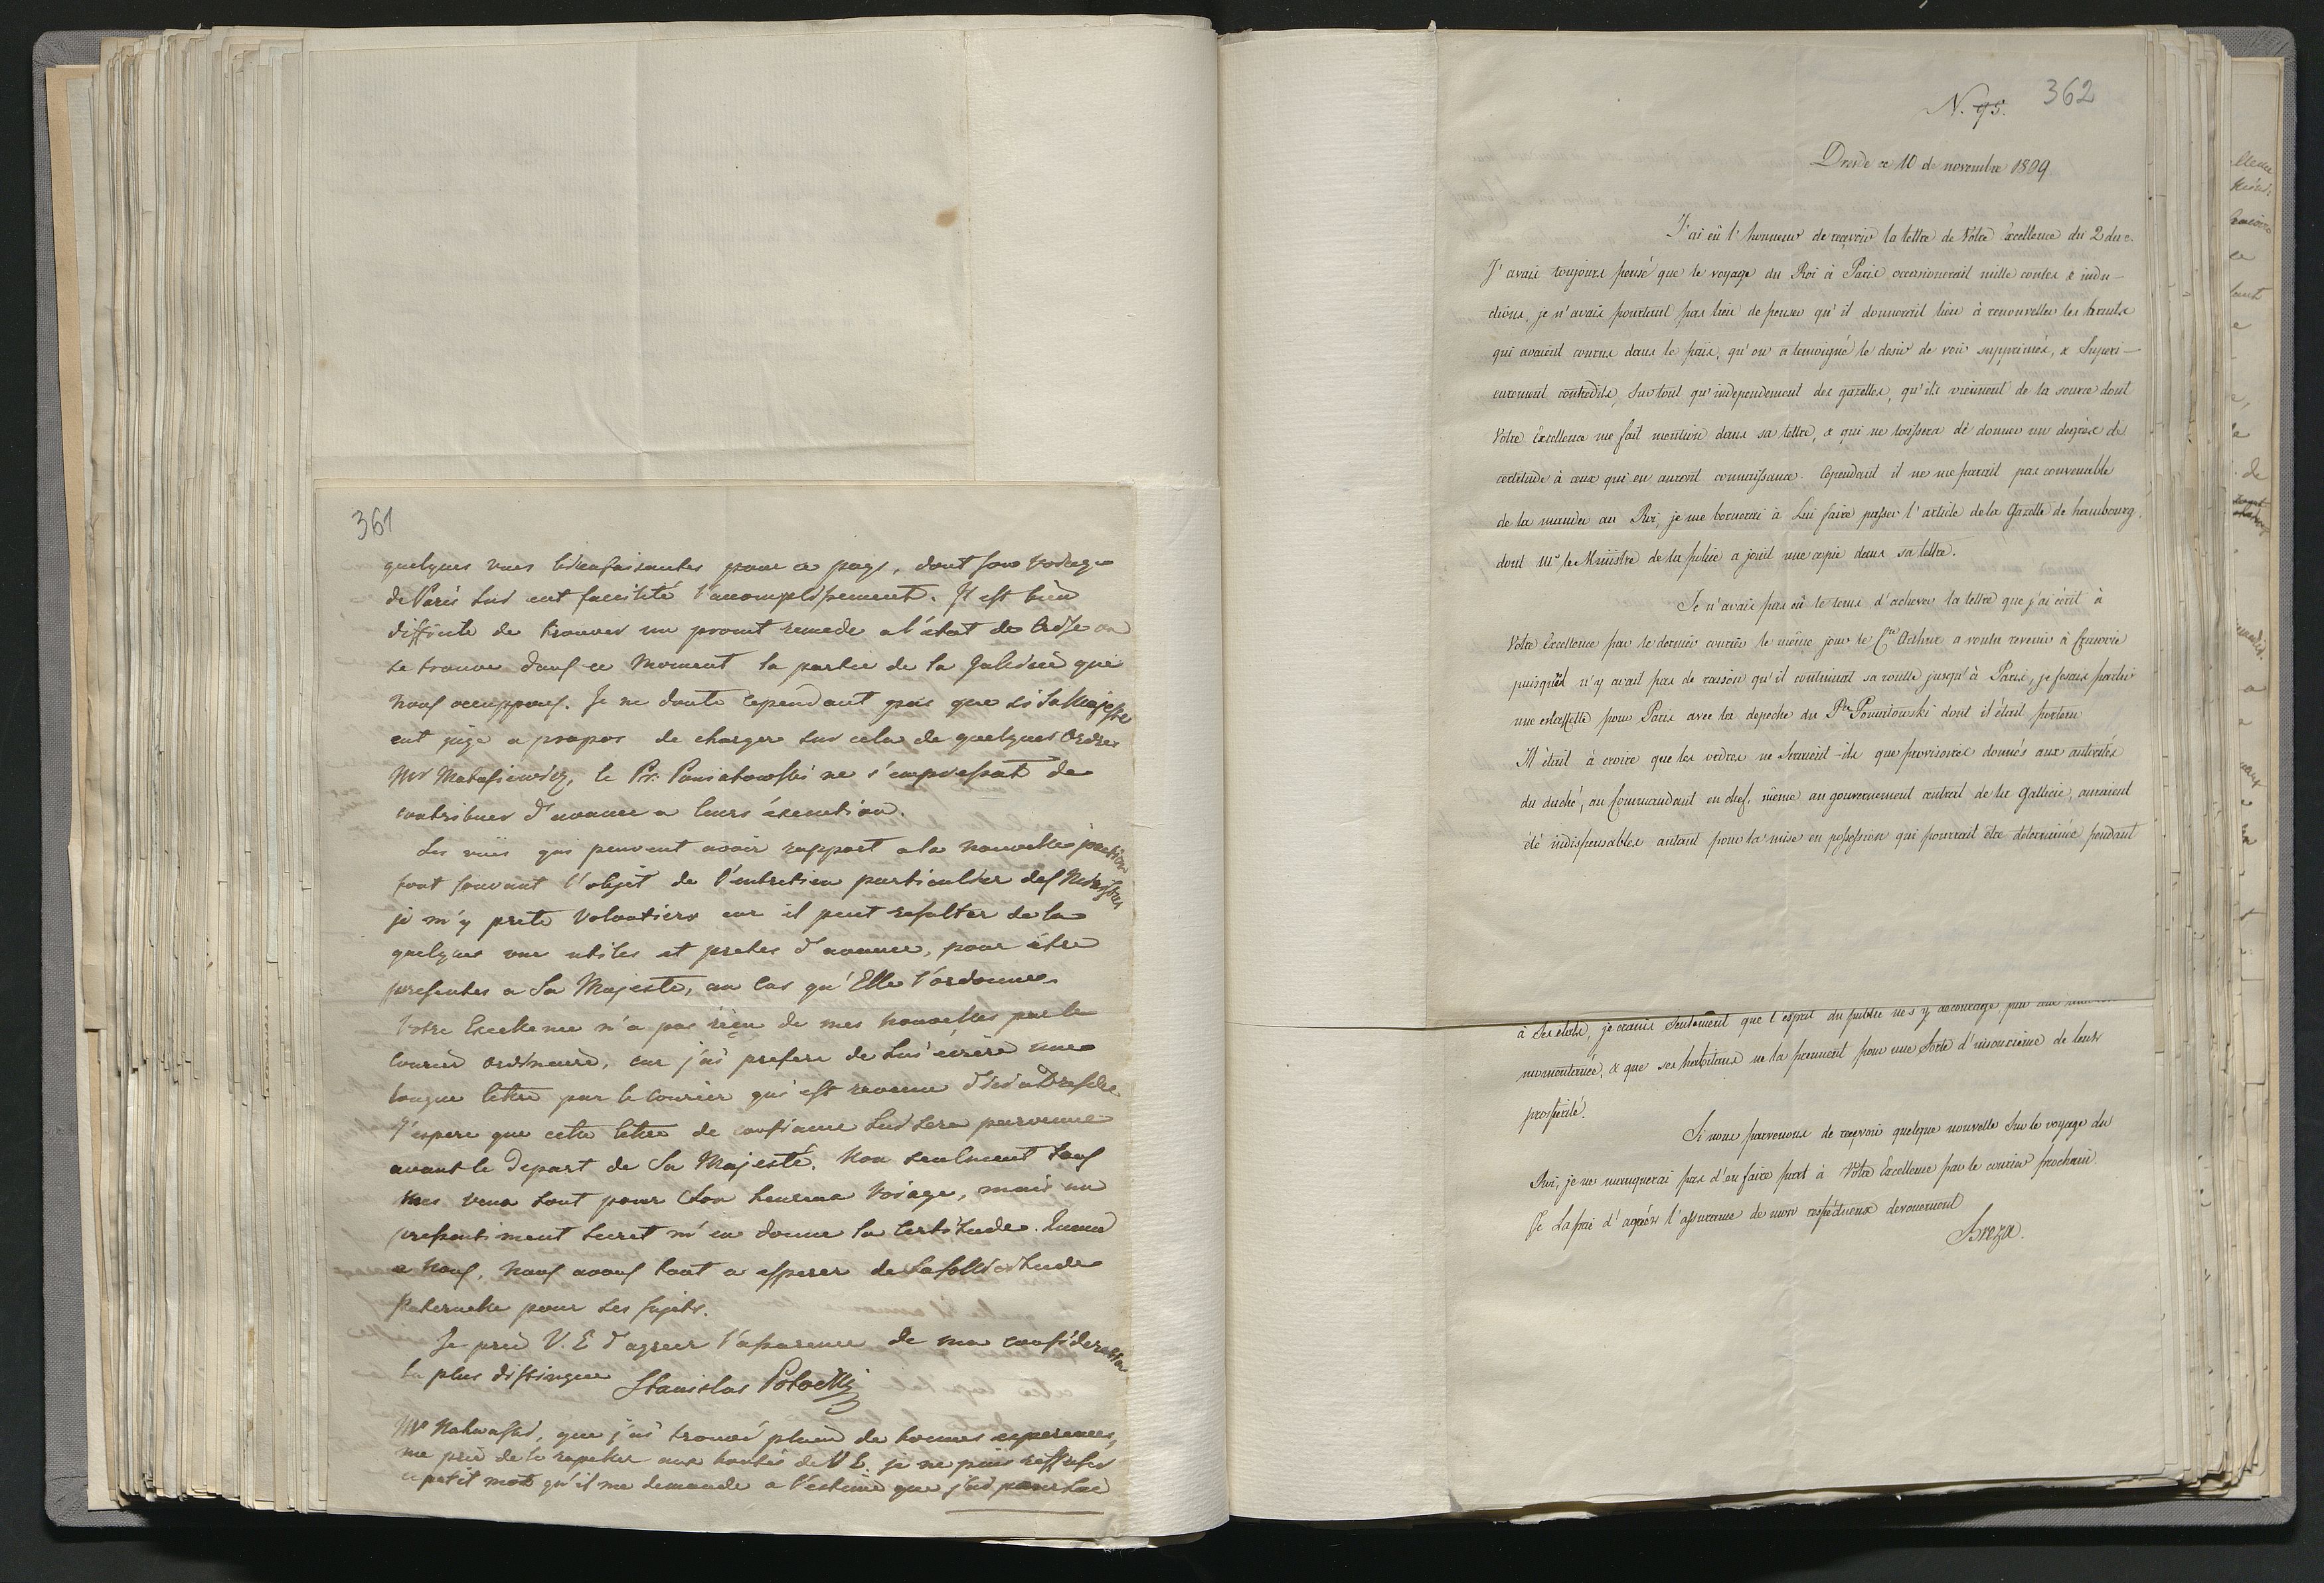 361
quelques vues bienfaisantes pour ce pays, dont son voyage
de Paris lui eut facilité l'accomplissement. Il est bien
difficile de trouver un promt remede a l'état de Crise ou
se trouve dans ce moment la partie de la Galicie que
nous occuppons. Je ne doute cependant pas que si Sa Majesté
eut jugé a propos de charger sur cela de quelques Ordres
Mr Matusiewicz, le Pr. Poniatowski ne s'empressat de
contribuer d'avance a leurs éxecution.
Les vües qui peuvent avoir rapport a la nouvelle
sont souvant l'objet de l'entretien particulier des Ministres
je m'y prete volontiers car il peut resulter de la
quelques vues utiles et pretes d'avance, pour étre
presentes a Sa Majesté, au cas qu'Elle l'ordonne.
Votre Excellence n'a pas reçu de mes nouvelles par le
Courier ordinaire, car j'ai preferé de Lui écrire une
longue lettre par le Courier qui est revenu d'ici a Dresde
J'espere que cette lettre de confiance Lui sera parvenue
avant le Depart de Sa Majesté. Non seulment tous
mes vœux sont pour Son heureux voiage, mais un
pressentiment secret m'en donne la Certitude. Quand
a nous, nous avons tout a esperer de Sa sollicitude
Paternelle pour ses sujets.
Je prie V. E d'agreer l'assurence de ma consideration
la plus distingue Stanislas Potocki
Mr Nakwaski, que j'ai trouvé plein de bonnes esperences,
me prie de le rapeller aux bontés de V E. je ne puis reffuser
ce petit mot qu'il me demande a l'estime que j'ai pour lui
N. 95. 362
Dresde ce 10 de novembre 1809
J'ai eû l'honneur de recevoir la lettre de Vôtre Excellence du 2 du c.
J'avais toujours pensé que le voyage du Roi à Paris occasionerait mille contes & indu-
ctions, je n'avais pourtant pas lieu de penser qu'il donnerait lieu à renouveller les bruits
qui avaient courus dans le païs, qu'on a temoigné le desir de voir supprimés, & Superi-
eurement contredits, Sur tout qu'independement des gazettes, qu'ils viennent de la source dont
Votre Excellence me fait mention dans sa lettre, & qui ne laissera de donner un degrés de
certitude à ceux qui en auront connaissance. Cependant il ne me parait pas convenable
de la mander au Roi, je me bornerai à Lui faire passer l'article de la Gazette de hambourg,
dont Mr le Ministre de la police a joint une copie dans sa lettre.
Je n'avais pas eû le tems d'achever la lettre que j'ai écrit à
Votre Excellence par le dernier courier le même jour le Cte Arthur a voulu revenir à
puisqu'il n'y avait pas de raison qu'il continuat sa route jusqu'à Paris, je fesais partir
une estaffette pour Paris avec la depeche du Pce Poniatowski dont il était porteur
Il était à croire que les ordres ne seraient-ils que provisoires donnés aux autorités
du duché, au Commandant en chef, même au gouvernement central de la Gallicie, auraient
été indispensables autant pour la mise en possession qui pourrait être determinée pendant
à Ses etats, je crains Seulement que l'esprit du public ne s'y décourage par une
momentanée, & que ses habitans ne la prennent pour une Sorte d'insouciance de leur
prosperité.
Si nous parvenons de reçevoir quelque nouvelle Sur le voyage du
Roi, je ne manquerai pas d'en faire part à Vôtre Excellence par le courier prochain.
Je La prie d'agréer l'assurance de mon respectueux devouement
Breza.